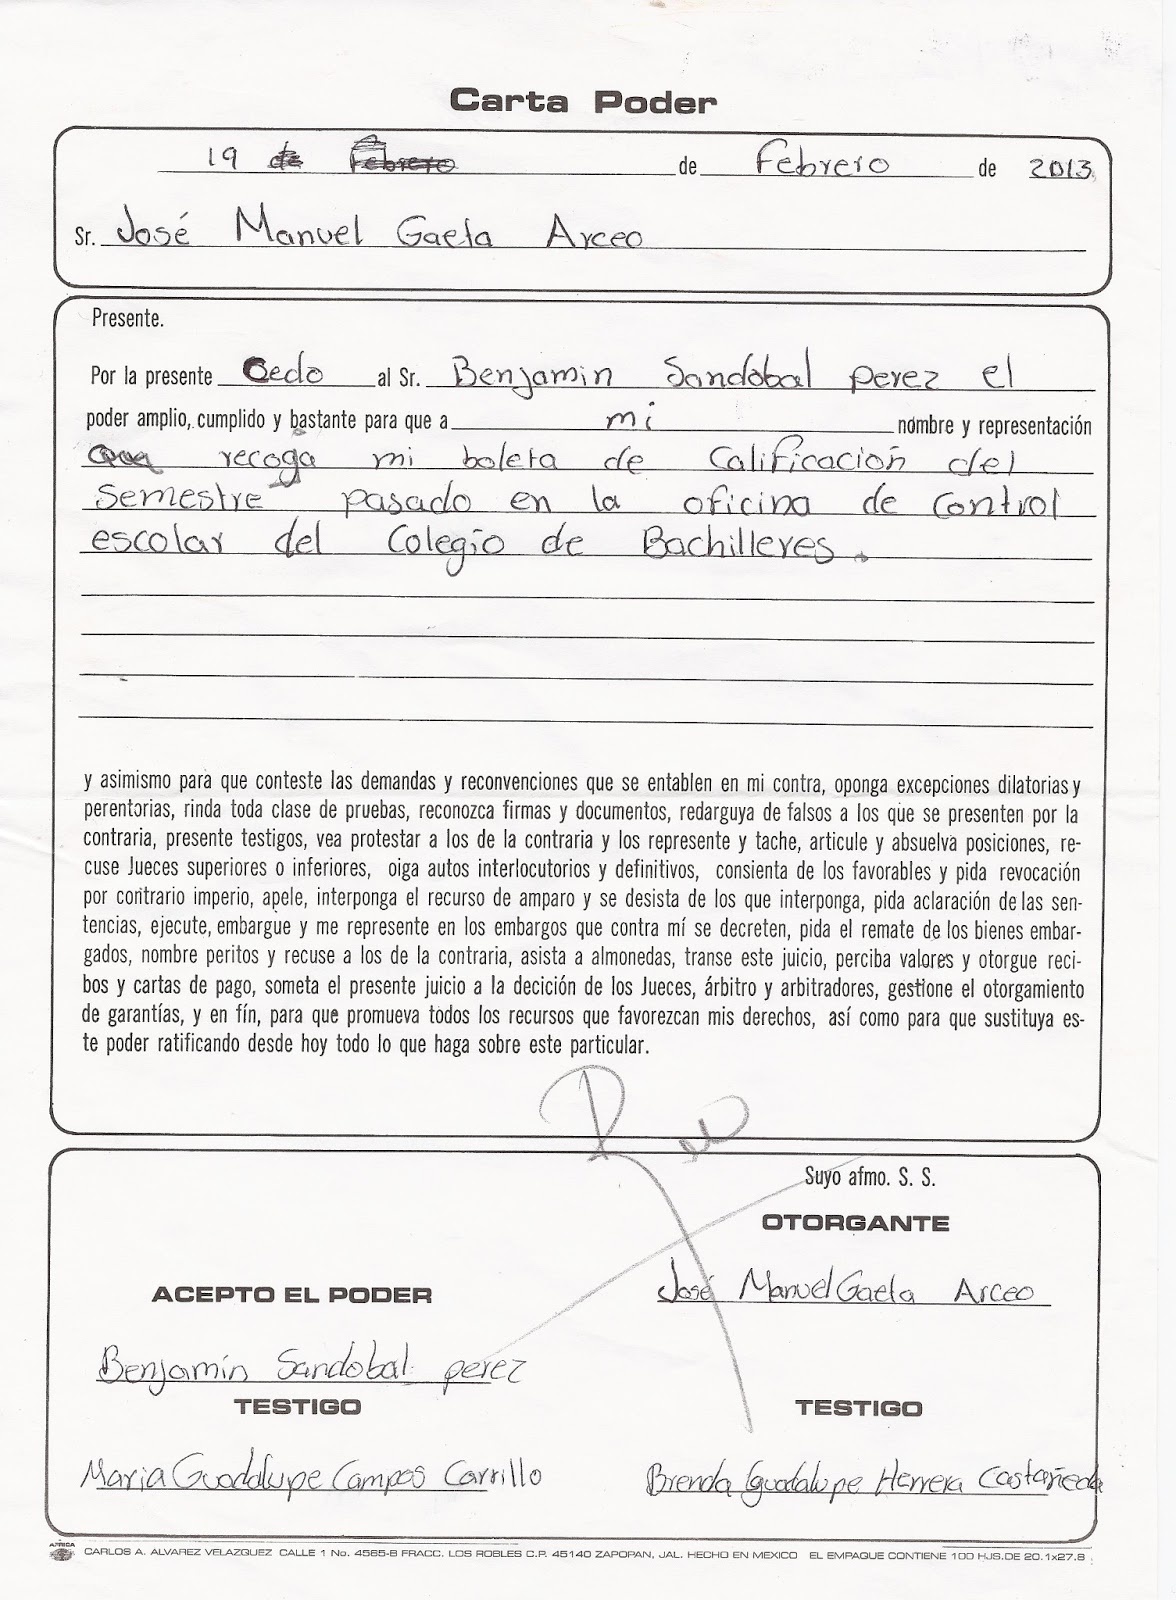 Carta Poder
19 de Febrero de Febrero de 2013
Sr. José Manuel Gaeta Arceo
Presente.
Por la presente Cedo al Sr. Benjamin Sandobal perez el
poder amplio, cumplido y bastante para que a mi nombre y representación
recoga mi boleta de Calificación del
Semestre pasado en la oficina de Control
escolar del Colegio de Bachilleres.
y asimismo para que conteste las demandas y reconvenciones que se entablen en mi contra, oponga excepciones dilatorias y
perentorias, rinda toda clase de pruebas, reconozca firmas y documentos, redarguya de falsos a los que se presenten por la
contraria, presente testigos, vea protestar a los de la contraria y los represente y tache, articule y absuelva posiciones, re-
cuse Jueces superiores o inferiores, oiga autos interlocutorios y definitivos, consienta de los favorables y pida revocación
por contrario imperio, apele, interponga el recurso de amparo y se desista de los que interponga, pida aclaración de las sen-
tencias, ejecute, embargue y me represente en los embargos que contra mí se decreten, pida el remate de los bienes embar-
gados, nombre peritos y recuse a los de la contraria, asista a almonedas, transe este juicio, perciba valores y otorgue reci-
bos y cartas de pago, someta el presente juicio a la decición de los Jueces, árbitro y arbitradores, gestione el otorgamiento
de garantías, y en fín, para que promueva todos los recursos que favorezcan mis derechos, así como para que sustituya es-
te poder ratificando desde hoy todo lo que haga sobre este particular.
Suyo afmo. S. S.
OTORGANTE
José Manuel Gaeta Arceo
ACEPTO EL PODER
Benjamín Sandobal perez
TESTIGO
TESTIGO
Maria Guadalupe Campos Carrillo
Brenda Guadalupe Herrera Castañeda
CARLOS A. ALVAREZ VELAZQUEZ CALLE 1 No. 4565-B FRACC. LOS ROBLES C.P. 45140 ZAPOPAN, JAL. HECHO EN MEXICO EL EMPAQUE CONTIENE 100 HJS.DE 20.1x27.8